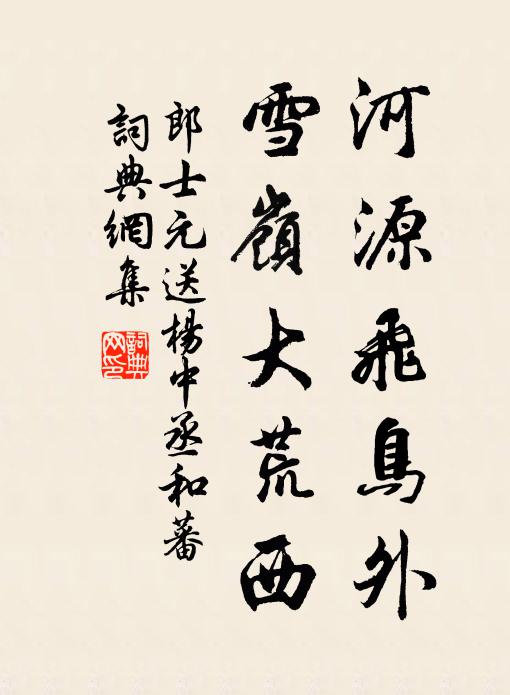 河源飛鳥外
雪嶺大荒西
郎士元送楊中丞和蕃
詞典網集
詞典网印